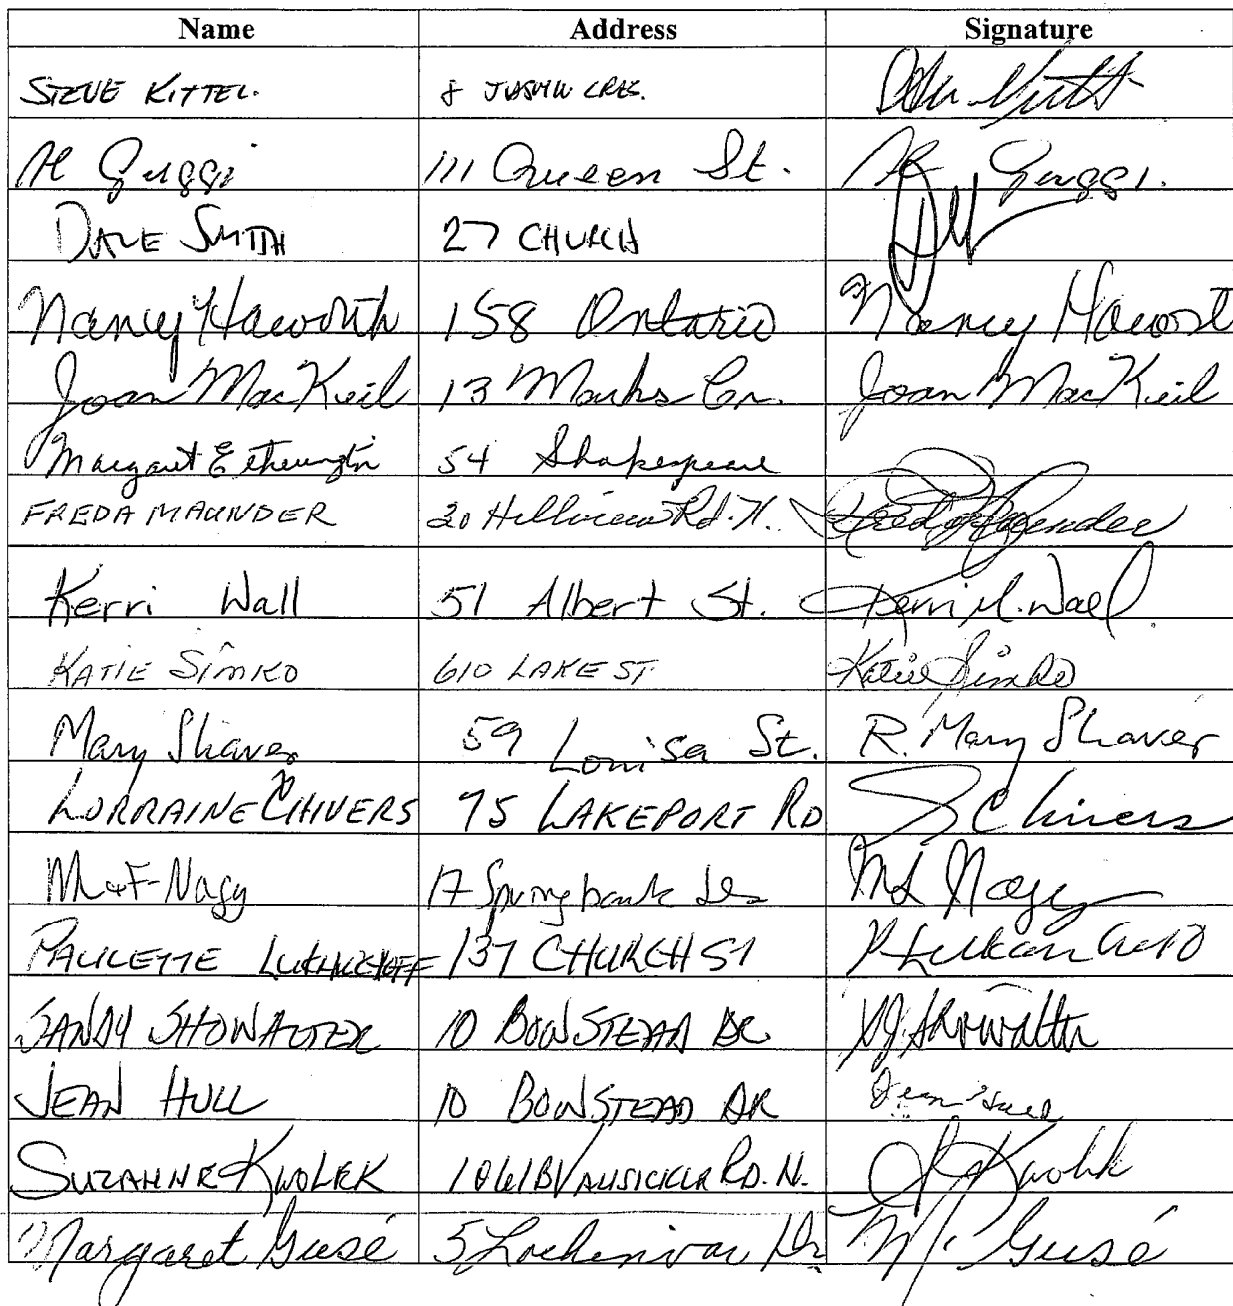 Name Address Signature
STEVE KITTEL. 8 CRES.
H Guggi 111 Queen St. H Guggi.
DAVE SMITH 27 CHURCH
Nancy Haworth 158 Ontario Nancy Haworth
Joan MacKeil 13 Marks Cr. Joan MacKeil
Margaret Etherington 54 Shakespeare
FREDA MAUNDER 20 Hillview Rd. N. Freda Maunder
Kerri Wall 51 Albert St. Kerri M. Wall
KATIE SIMKO 610 LAKE ST. Katie Simko
Mary Shaver 59 Louisa St. R. Mary Shaver
LORRAINE CHIVERS 75 LAKEPORT RD Chivers
M & F Nagy 17 Springbank Nagy
PAULETTE 137 CHURCH ST
SANDY SHOWALTER 10 BOWSTEAD DR Showalter
JEAN HULL 10 BOWSTEAD DR Jean Hull
SUZANNE KWOLEK RD. N. Kwolek
Margaret Gusé 5 Lochinvar Dr M. Gusé